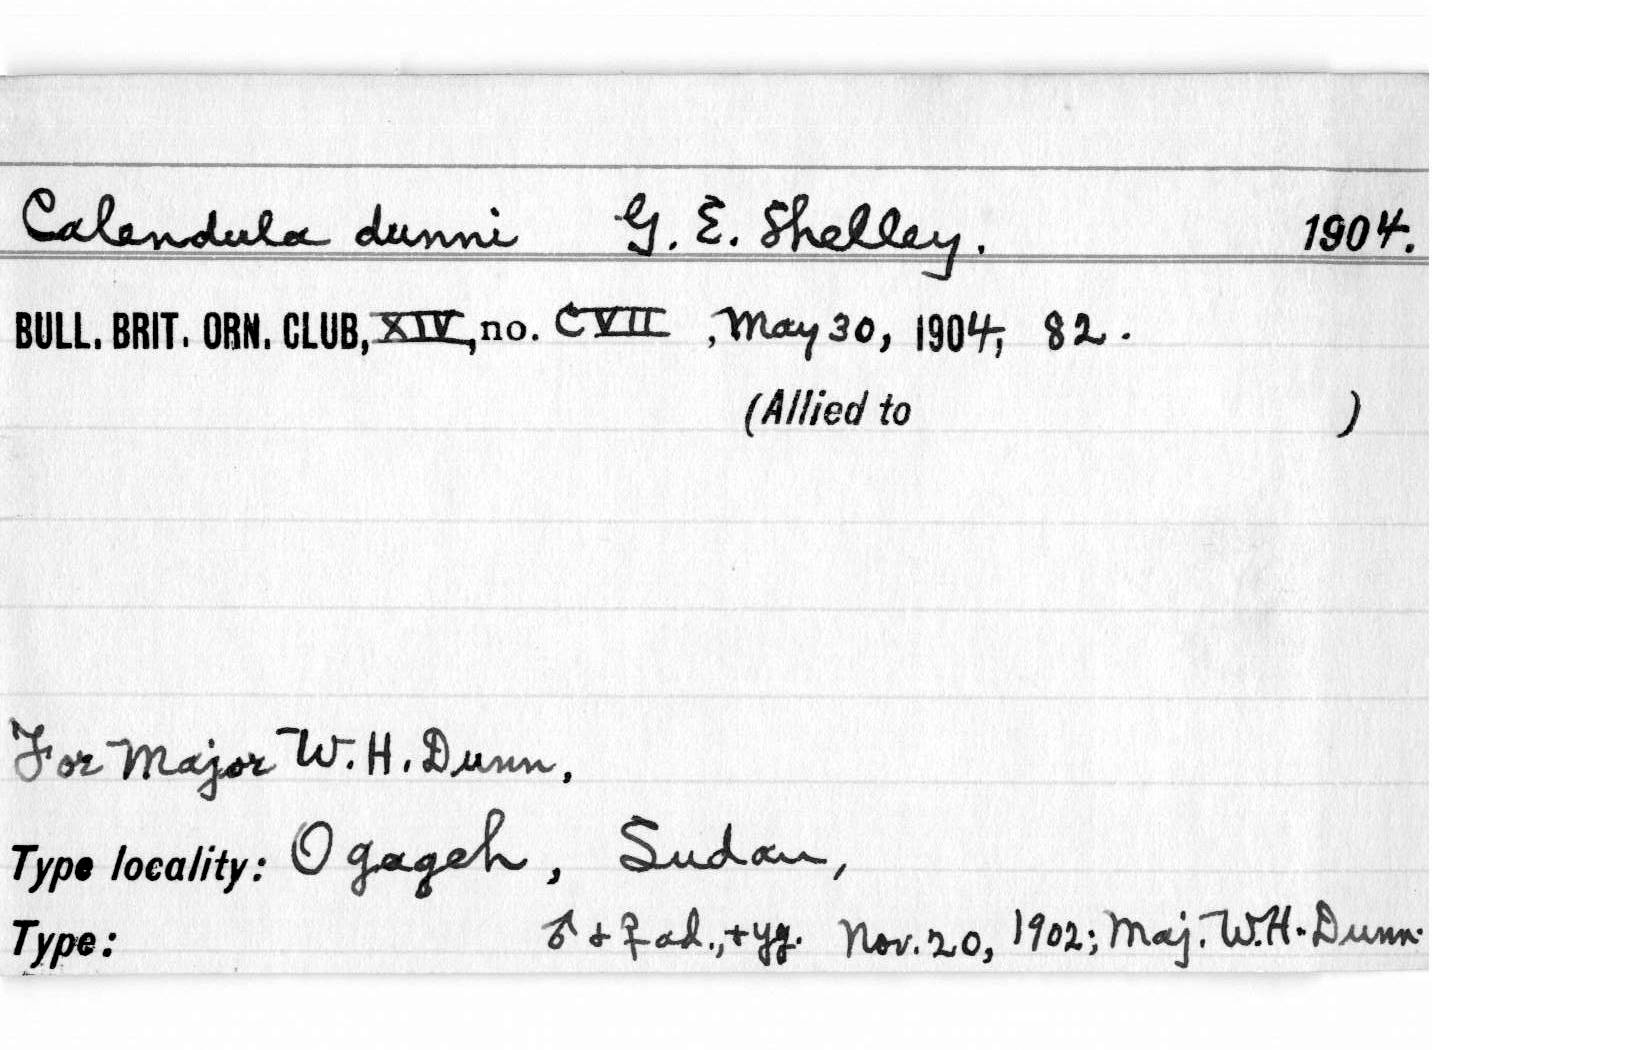 Calendula dunni G. E. Shelley. 1904.
BULL. BRIT. ORN. CLUB, XIV, no. CVII , May 30, 1904; 82.
(Allied to )
For Major W. H. Dunn,
Type locality: Ogageh, Sudan,
Type: ♂ + ♀ ad., + yg. Nov. 20, 1902; Maj. W.H. Dunn.